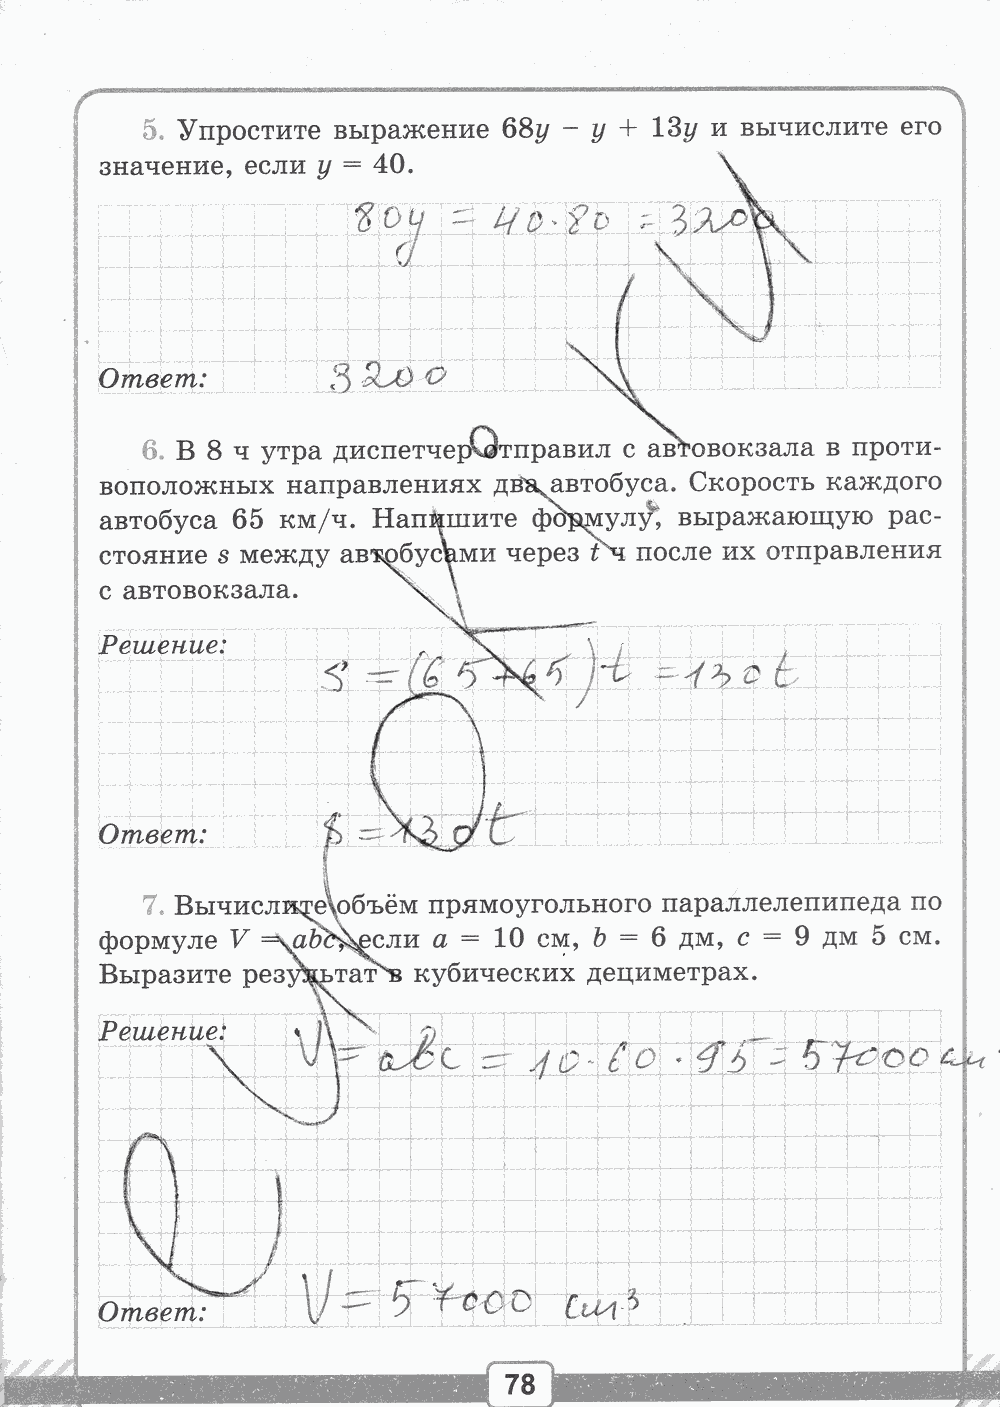 5. Упростите выражение 68y − y + 13y и вычислите его
значение, если y = 40.
80y = 40·80 = 3200
Ответ: 3200
6. В 8 ч утра диспетчер отправил с автовокзала в проти-
воположных направлениях два автобуса. Скорость каждого
автобуса 65 км/ч. Напишите формулу, выражающую рас-
стояние s между автобусами через t ч после их отправления
с автовокзала.
Решение:
S = (65+65)·t = 130t
Ответ: S = 130t
7. Вычислите объём прямоугольного параллелепипеда по
формуле V = abc, если a = 10 см, b = 6 дм, c = 9 дм 5 см.
Выразите результат в кубических дециметрах.
Решение:
V = abc = 10·60·95 = 57000 см
Ответ: V = 57000 см³
78